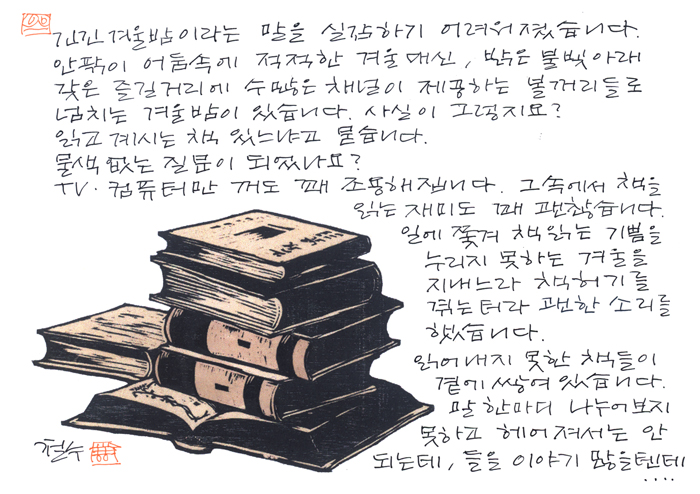 긴긴겨울밤이라는 말을 실감하기 어려워졌습니다.
안팎이 어둠속에 적적한 겨울대신, 밝은 불빛아래
갖은 즐길거리에 수많은 채널이 제공하는 볼꺼리들로
넘치는 겨울밤이 있습니다. 사실이 그렇지요?
읽고 계시는 책 있느냐고 묻습니다.
물색없는 질문이 되었나요?
TV·컴퓨터만 꺼도 꽤 조용해집니다. 그속에서 책을
읽는 재미도 꽤 괜찮습니다.
일에 쫓겨 책읽는 기쁨을
누리지 못하는 겨울을
지내느라 책허기를
겪는터라 괜한 소리를
했습니다.
읽어내지 못한 책들이
곁에 쌓여 있습니다.
말 한마디 나누어보지
못하고 헤어져서는 안
되는데, 들을 이야기 많을텐데
....
철수